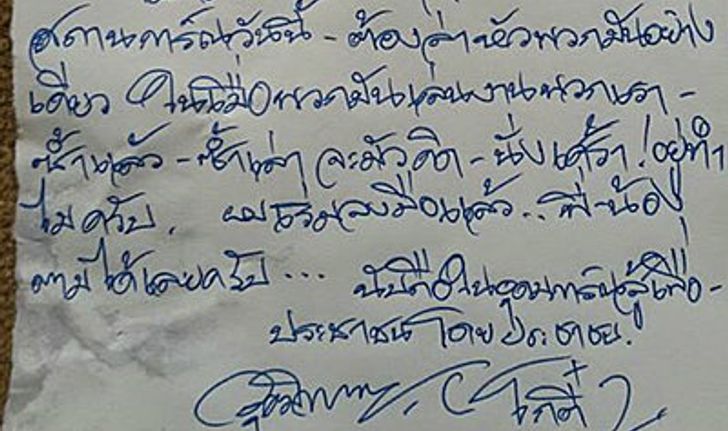 สถานการณ์วันนี้ - ต้องล่าหัวพวกมันอย่าง
เดียว ในเมื่อพวกมันเล่นงานพวกเรา -
ซ้ำแล้ว - ซ้ำเล่า จะมัวคิด - นั่งเศร้า! อยู่ทำ
ไมครับ. ผมเริ่มลงมือแล้ว.. พี่-น้อง
ตามได้เลยครับ... นับถือในอุดมการณ์สู้เพื่อ -
ประชาชนโดยประชาชน.
โกตี๋